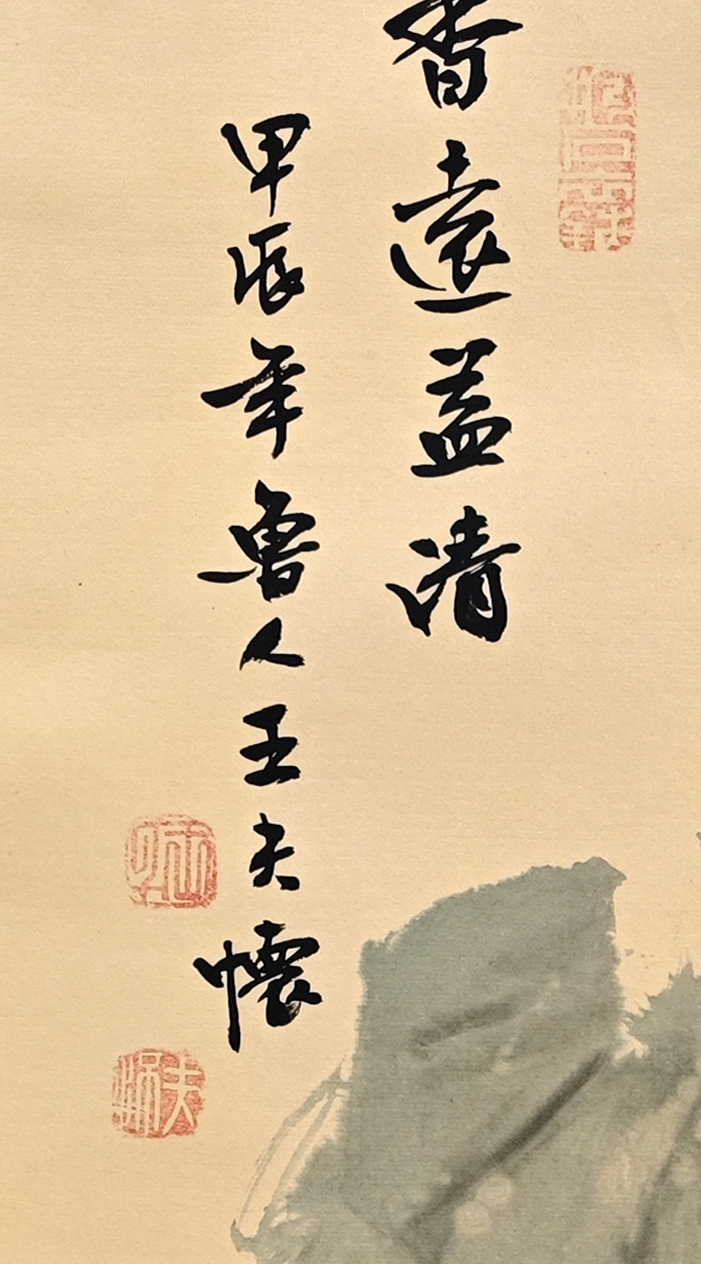 香遠益清
甲辰年魯人王夫懷